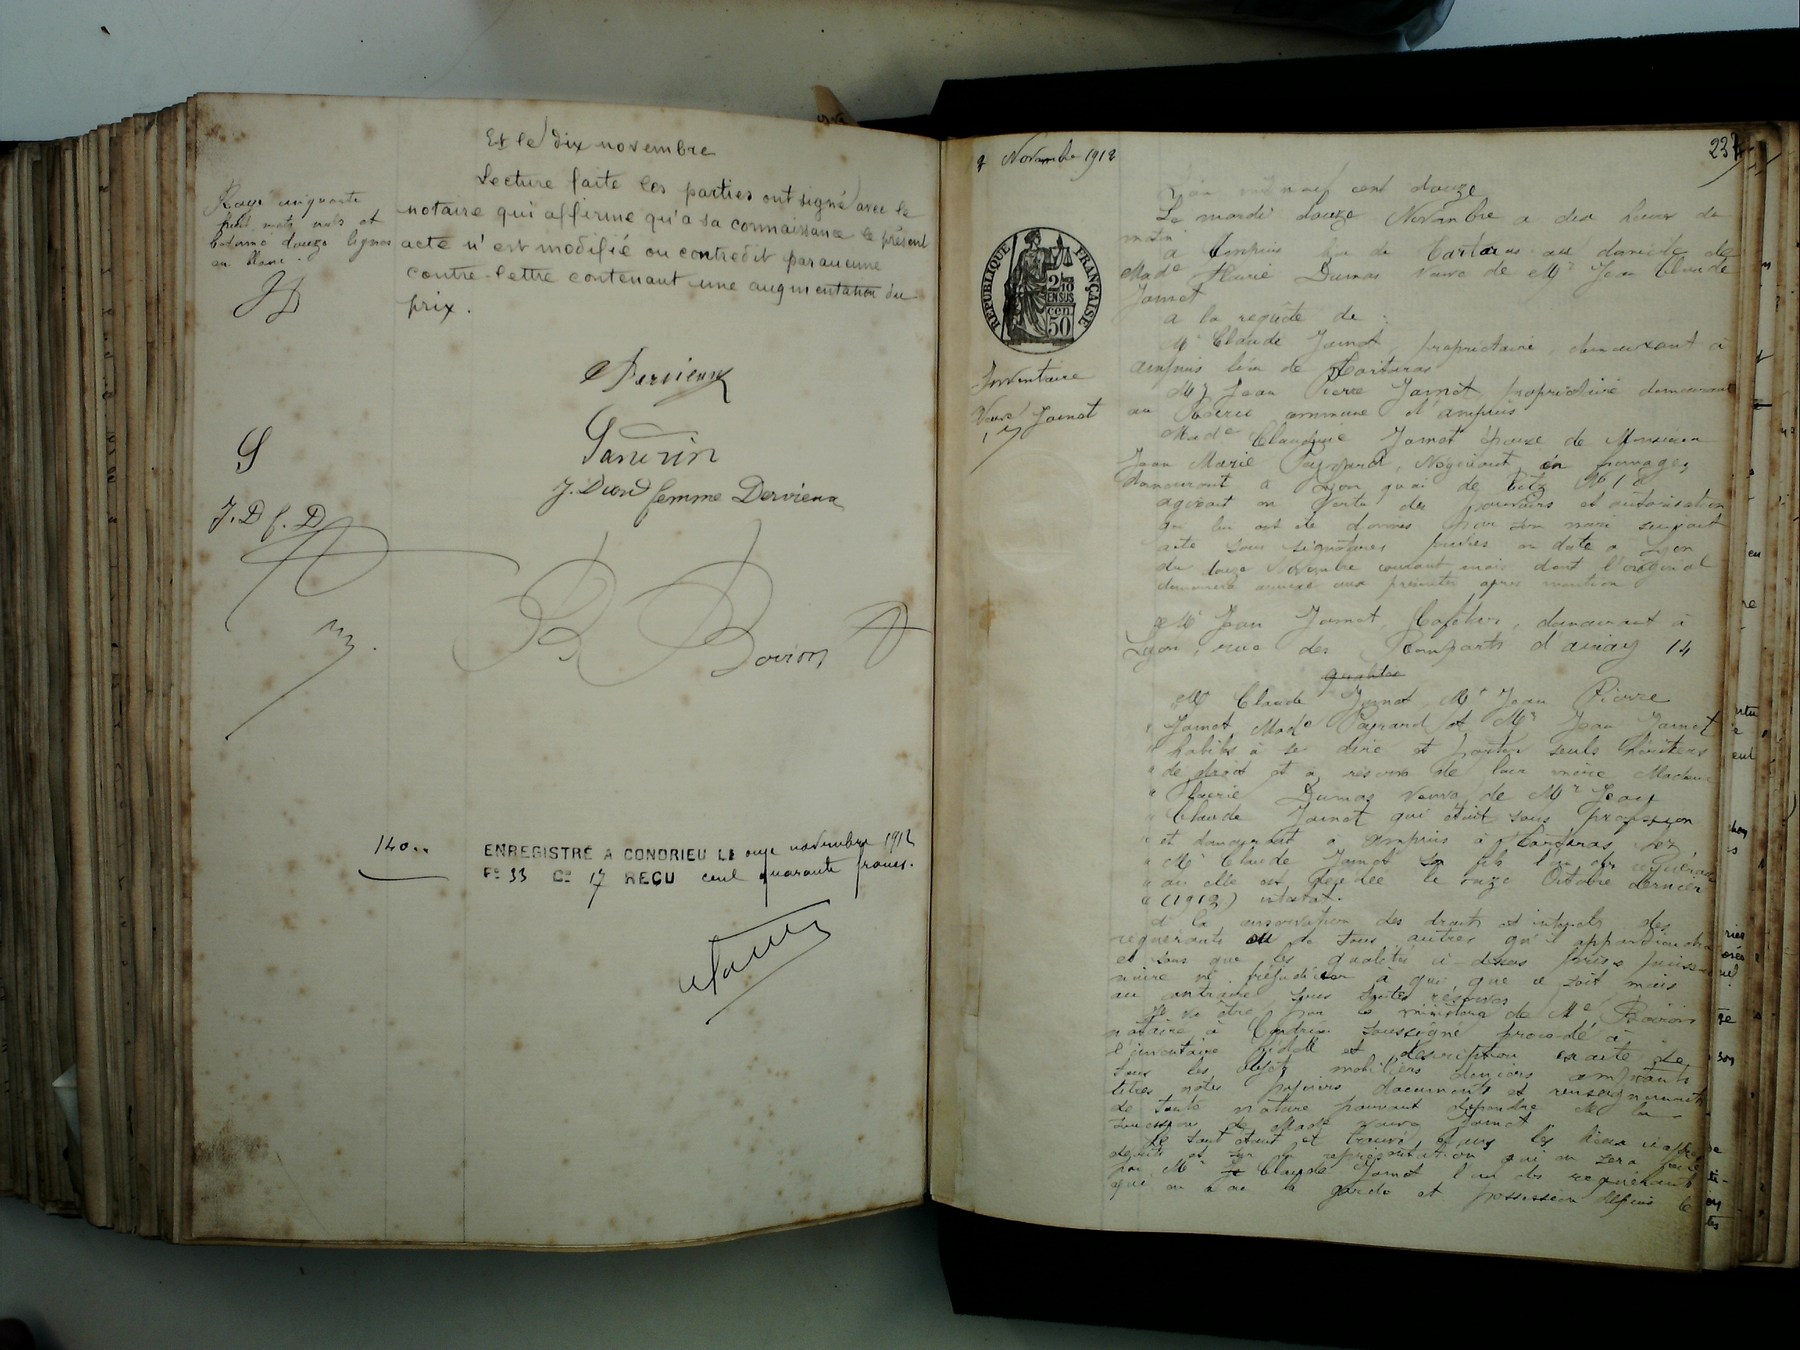 Et le dix novembre
Lecture faite les parties ont signé avec le
notaire qui affirme qu'à sa connaissance le présent
acte n'est modifié ou contredit par aucune
contre-lettre contenant une augmentation du
prix.
Rayé cinquante
huit mots nuls et
bâtonné douze lignes
en blanc.
JD
Dervieux
G
J. Dion femme Dervieux
J.D f. D
Boiron
140..
ENREGISTRÉ A CONDRIEU LE onze novembre 1912
F° 33 C° 17 REÇU cent quarante francs.
9 Novembre 1912
RÉPUBLIQUE FRANÇAISE
2/10
EN SUS
50
Inventaire
Veuve Jamet
L'an mil neuf cent douze
Le mardi douze Novembre à dix heures du
matin
à Ampuis lieu de au domicile de
Made Dumas veuve de Mr Jean Claude
Jamet
à la requête de :
Mr Claude Jamet, propriétaire, demeurant à
Ampuis lieu de
Mr Jean Pierre Jamet, propriétaire demeurant
au commune d'Ampuis
Made Claudine Jamet épouse de Monsieur
Jean Marie Peyrard, Négociant en fromages,
demeurant à Lyon quai de
agissant en vertu des pouvoirs et autorisation
qui lui ont été donnés par son mari suivant
acte sous signatures privées en date à Lyon
du douze Novembre courant mois dont l'original
demeurera annexé aux présentes après mention
Mr Jean Jamet, Cafetier, demeurant à
Lyon, rue des Remparts d'ainay 14
Qualités
Mr Claude Jamet, Mr Jean Pierre
Jamet Made Peyrard et Mr Jean Jamet
habiles à se dire et porter seuls héritiers
de droit et à réserve de leur mère Madame
Dumas veuve de Mr Jean
Claude Jamet qui était sans profession
et demeurait à Ampuis à chez
Mr Claude Jamet son fils l'un des requérants
où elle est décédée le onze Octobre dernier
(1912) intestat.
A la conservation des droits et intérêts des
requérants et de tous autres qu'il appartiendra
et sans que les qualités ci-dessus prises puissent
nuire ni préjudicier à qui que ce soit mais
au contraire sous toutes réserves
Il va être par le ministère de Me Boiron
notaire à Condrieu soussigné procédé à
l'inventaire fidèle et description exacte de
tous les objets mobiliers deniers comptants
titres notes papiers documents et renseignements
de toute nature pouvant dépendre de la
succession de Made veuve Jamet
Le tout étant et trouvé dans les lieux ci-après
désignés et sur la représentation qui en sera faite
par Mr Claude Jamet l'un des requérants
qui en a eu la garde et possession depuis le